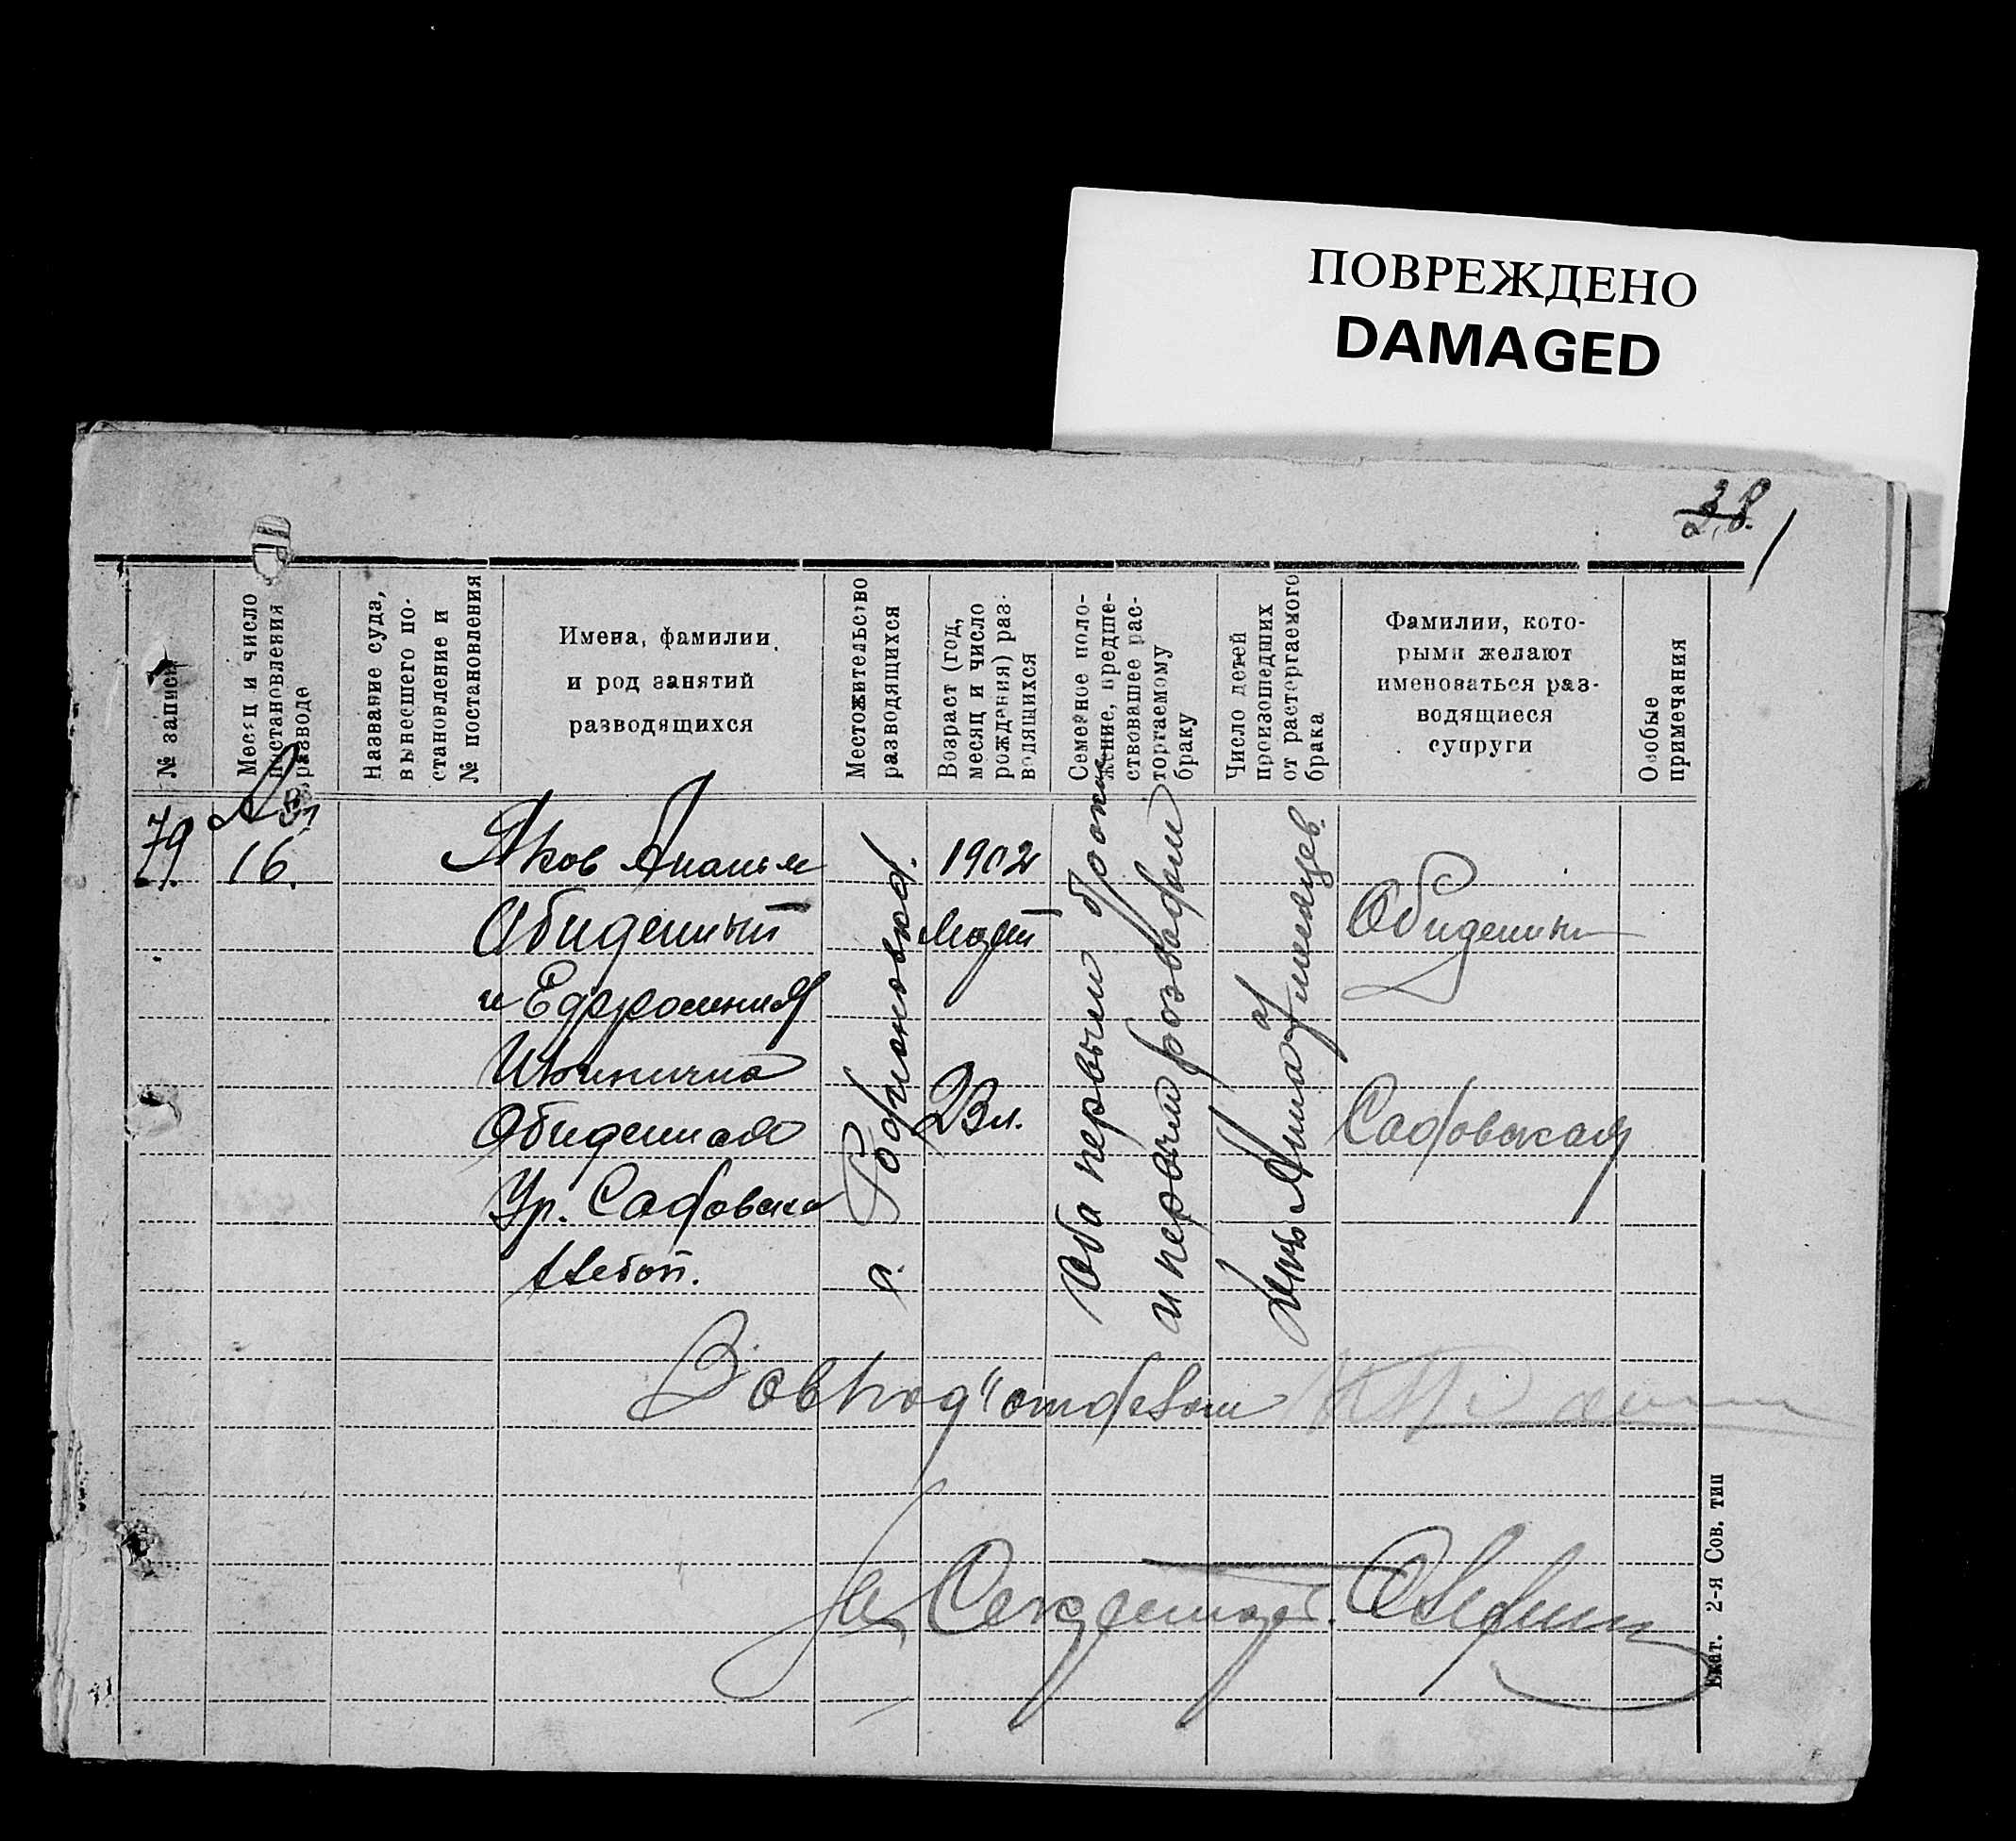 ПОВРЕЖДЕНО
DAMAGED
38.
№ записи
Месяц и число
постановления
разводе
Название суда,
вынесшего по-
становление и
№ постановления
Имена, фамилии
и род занятий
разводящихся
Местожительство
разводящихся
Возраст (год,
месяц и число
рождения) раз-
водящихся
Семейное поло-
жение, предше-
ствовавшее рас-
торгаемому
браку
Число детей
произошедших
от расторгаемого
брака
Фамилии, кото-
рыми желают
именоваться раз-
водящиеся
супруги
Особые
примечания
79
16.
Яков
Обиденный
и
Обиденная
Ур. Садовска
с. Родионовка.
1902
23 л.
Оба первым браком
и первым розводом
дочь Анна
месяцев
Обиденный
Садовская
Секретар.
Екат. 2-я Сов. тип